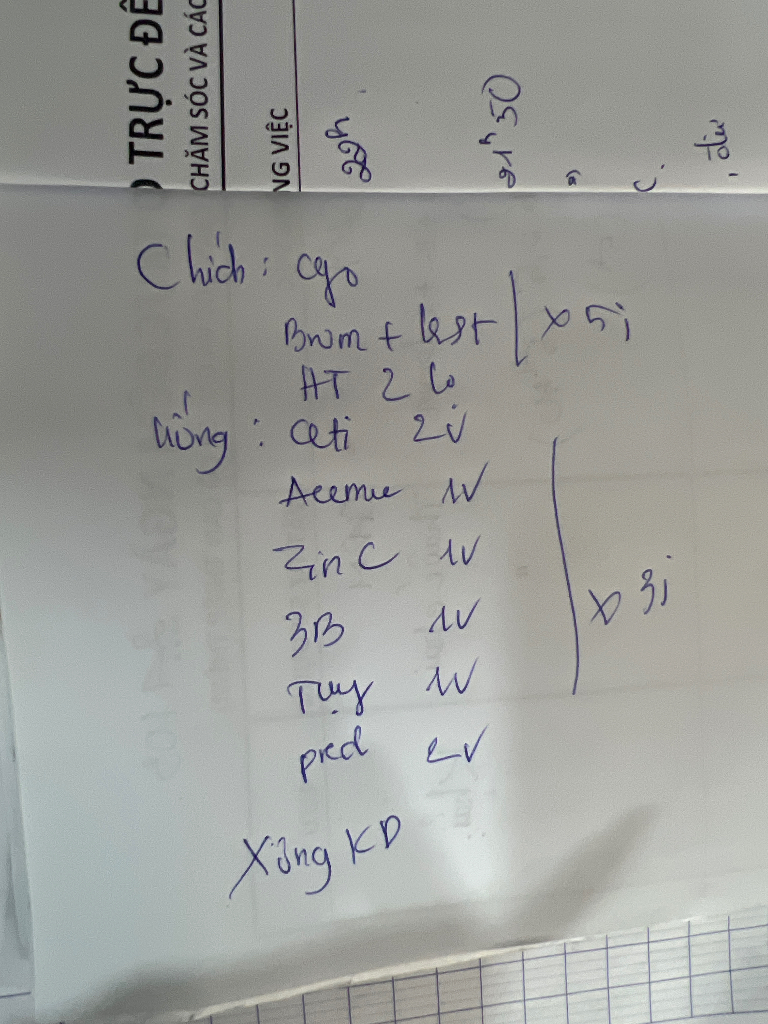 TRỰC ĐÊ
CHĂM SÓC VÀ CÁC
NG VIỆC
22h
21h50
Chích:
Brom +
HT 2 lọ
x 5
Uống: Ceti 2v
Acemu 1v
Zin C 1v
3B 1v
Tuy 1v
pred 2v
x 3
Xông KD